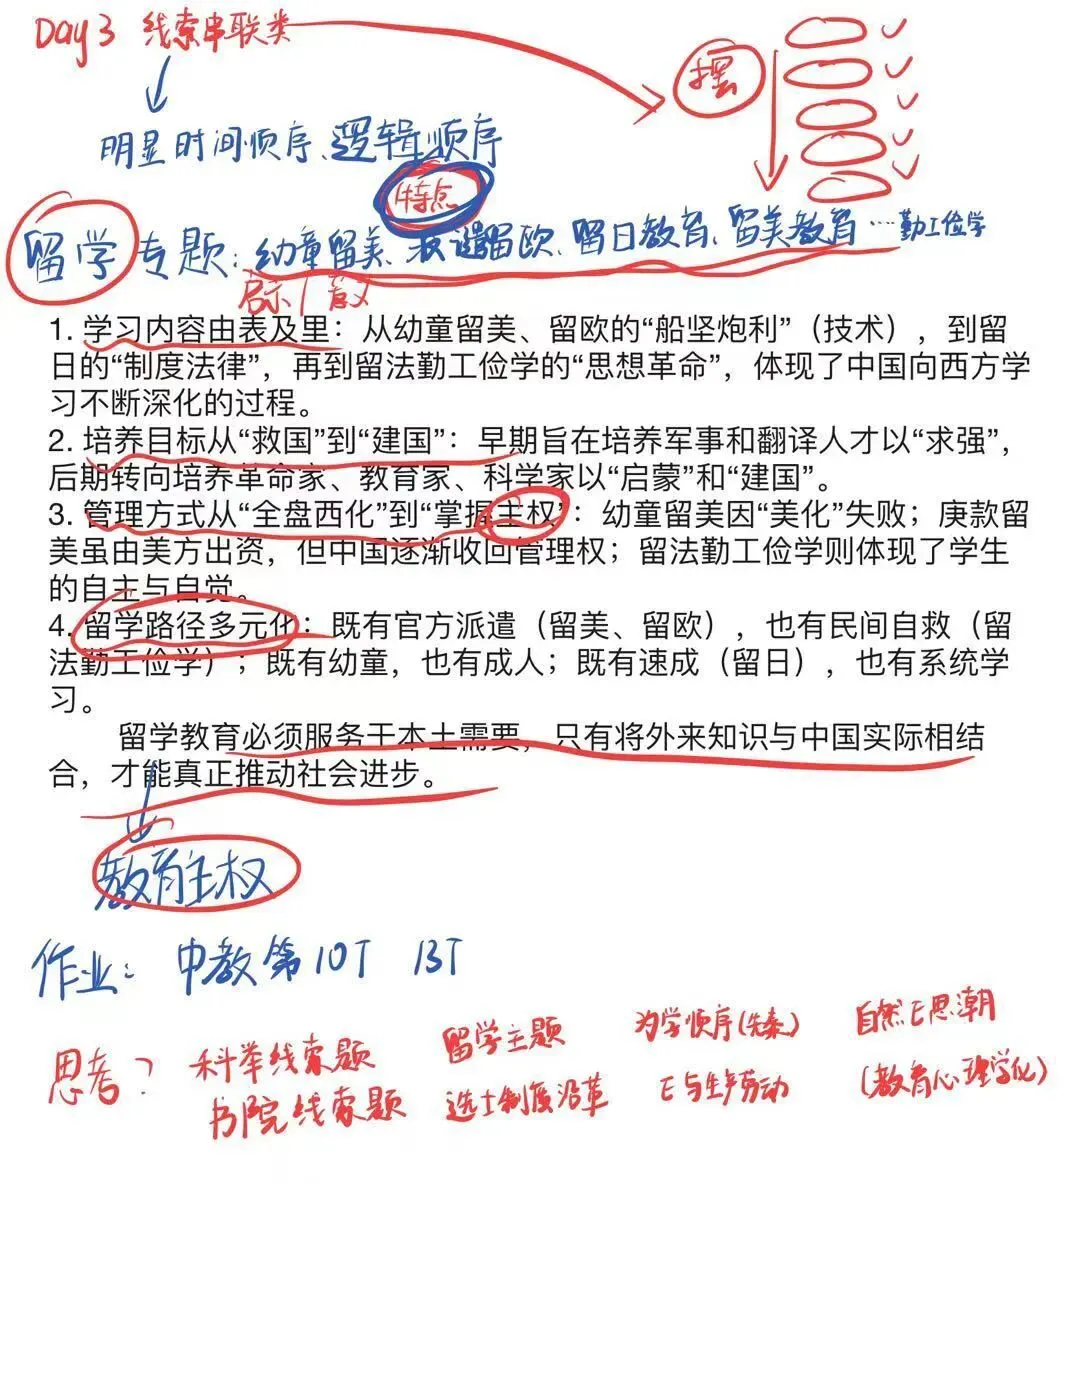 Day 3 线索串联类
摆
明显时间顺序、逻辑顺序
特点
留学专题：幼童留美、派遣留欧、留日教育、留美教育…勤工俭学
启示/意义
1. 学习内容由表及里：从幼童留美、留欧的“船坚炮利”（技术），到留
日的“制度法律”，再到留法勤工俭学的“思想革命”，体现了中国向西方学
习不断深化的过程。
2. 培养目标从“救国”到“建国”：早期旨在培养军事和翻译人才以“求强”，
后期转向培养革命家、教育家、科学家以“启蒙”和“建国”。
3. 管理方式从“全盘西化”到“掌握主权”：幼童留美因“美化”失败；庚款留
美虽由美方出资，但中国逐渐收回管理权；留法勤工俭学则体现了学生
的自主与自觉。
4. 留学路径多元化：既有官方派遣（留美、留欧），也有民间自救（留
法勤工俭学）；既有幼童，也有成人；既有速成（留日），也有系统学
习。
留学教育必须服务于本土需要，只有将外来知识与中国实际相结
合，才能真正推动社会进步。
教育主权
作业：中教第10T 13T
思考？ 科举线索题 留学主题 为学顺序(先秦) 自然E思潮
书院线索题 选士制度沿革 E与生产劳动 (教育心理学化)